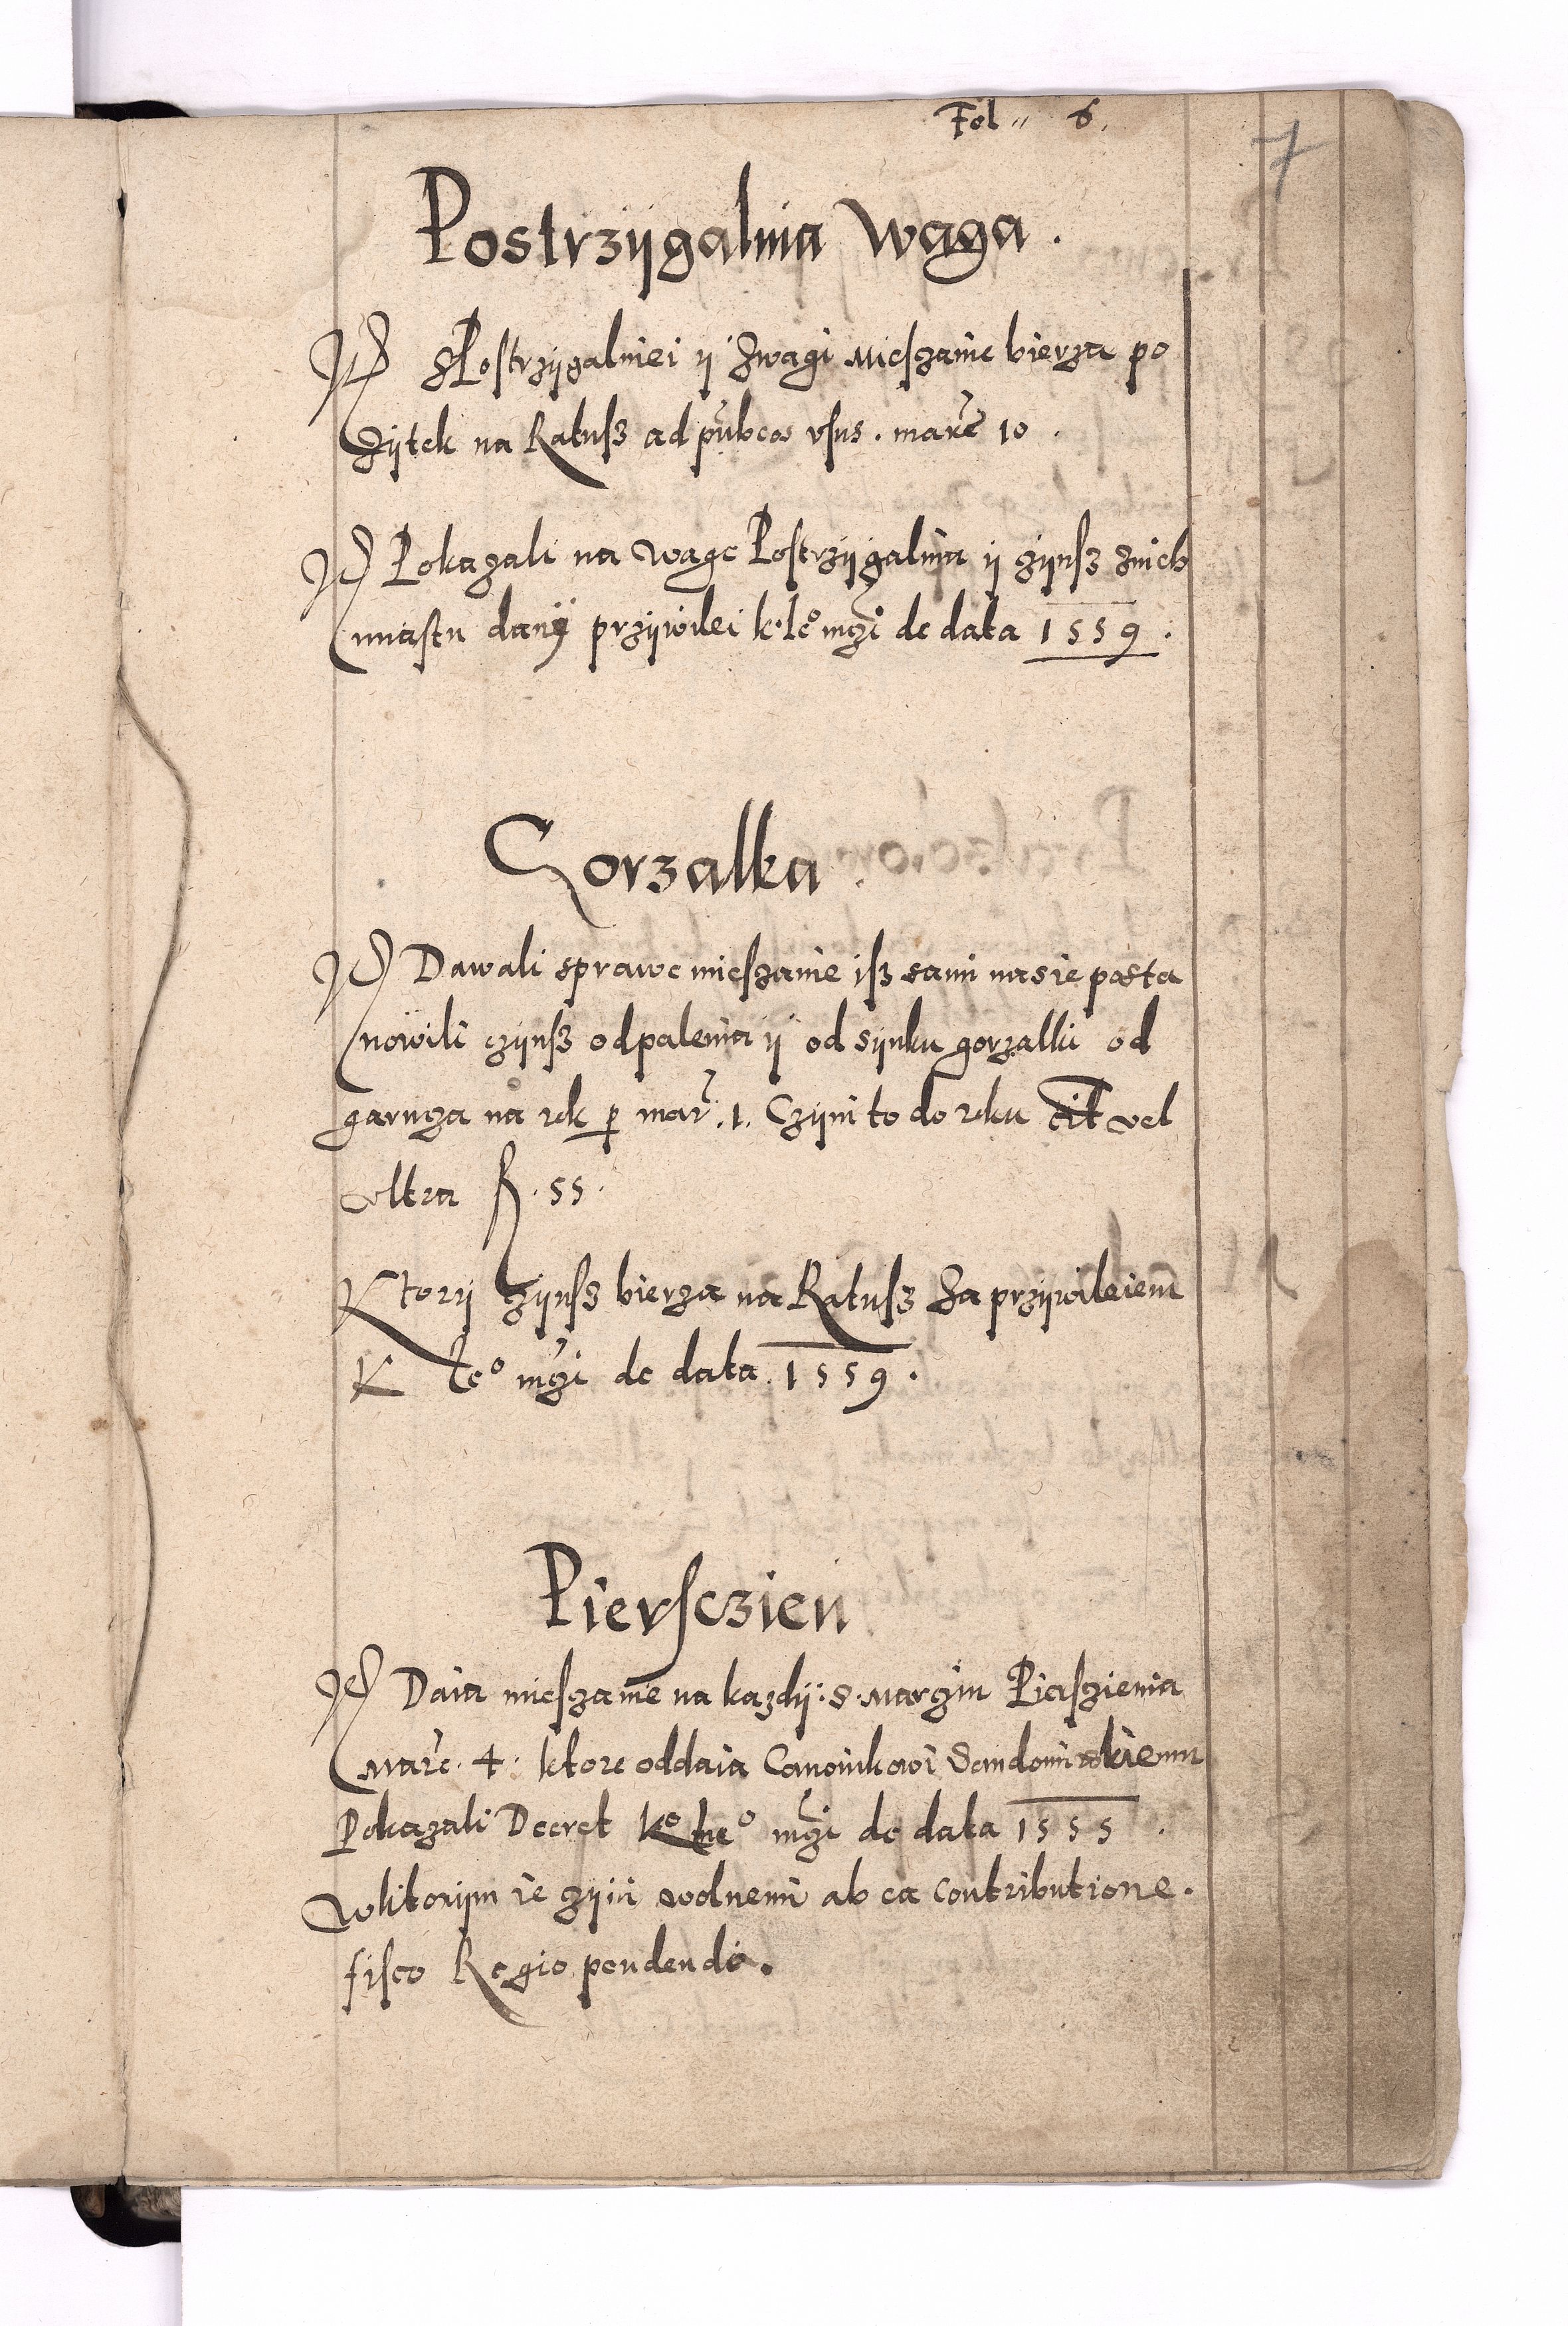 Fol 6.
7
Postrzygalnia Waga.
It Z Postrzÿgalniei ÿ Zwagi Mieszanie bierza po
zÿtek na Ratusz ad pubcos vsus. marc 10.
It Pokazali na wage Postrzÿgalnia ÿ czÿnsz znich
miastu danÿ przÿwilei k. Ie° mczi de data 1559.
Gorzalka
It Dawali sprawe mieszanie isz sami nasie posta
nowili czÿnsz odpalenia ÿ od sÿnku gorzalki od
garnza na rok p mar. 1. Czÿni to do roku cit vel
vltra R. 55.
Ktorÿ czÿnsz bierza na Ratusz Za przÿwileiem
K Ie° mczi de data 1559.
Piersczien
It Daia mieszanie na kazdÿ S. Marczin Pierszienia
Marc. 4. ktore oddaia Canonikowi Sendomirskiemu
Pokazali Decret K° Ie° mczi de data 1555.
Wktorÿm ie czÿni wolnemi ab ea contributione.
fisco Regio pendendo.